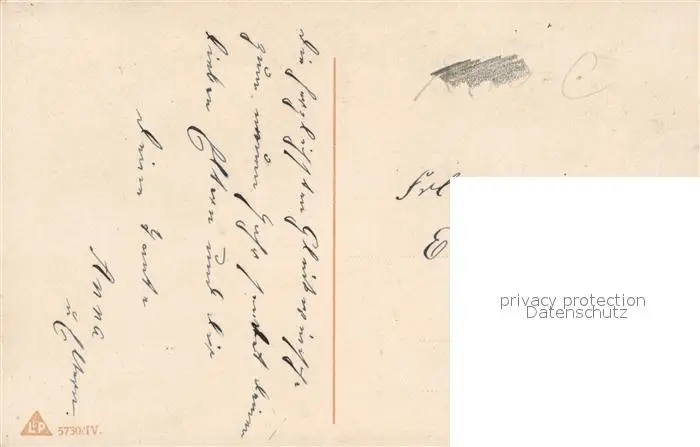 Die herzlichsten Glückwünsche
zum neuen Jahr sendet Deinen
lieben Eltern und Dir
Deine Tante
Anna
u. Eltern.
Frl.
E
privacy protection
Datenschutz
L&P
5730/IV.